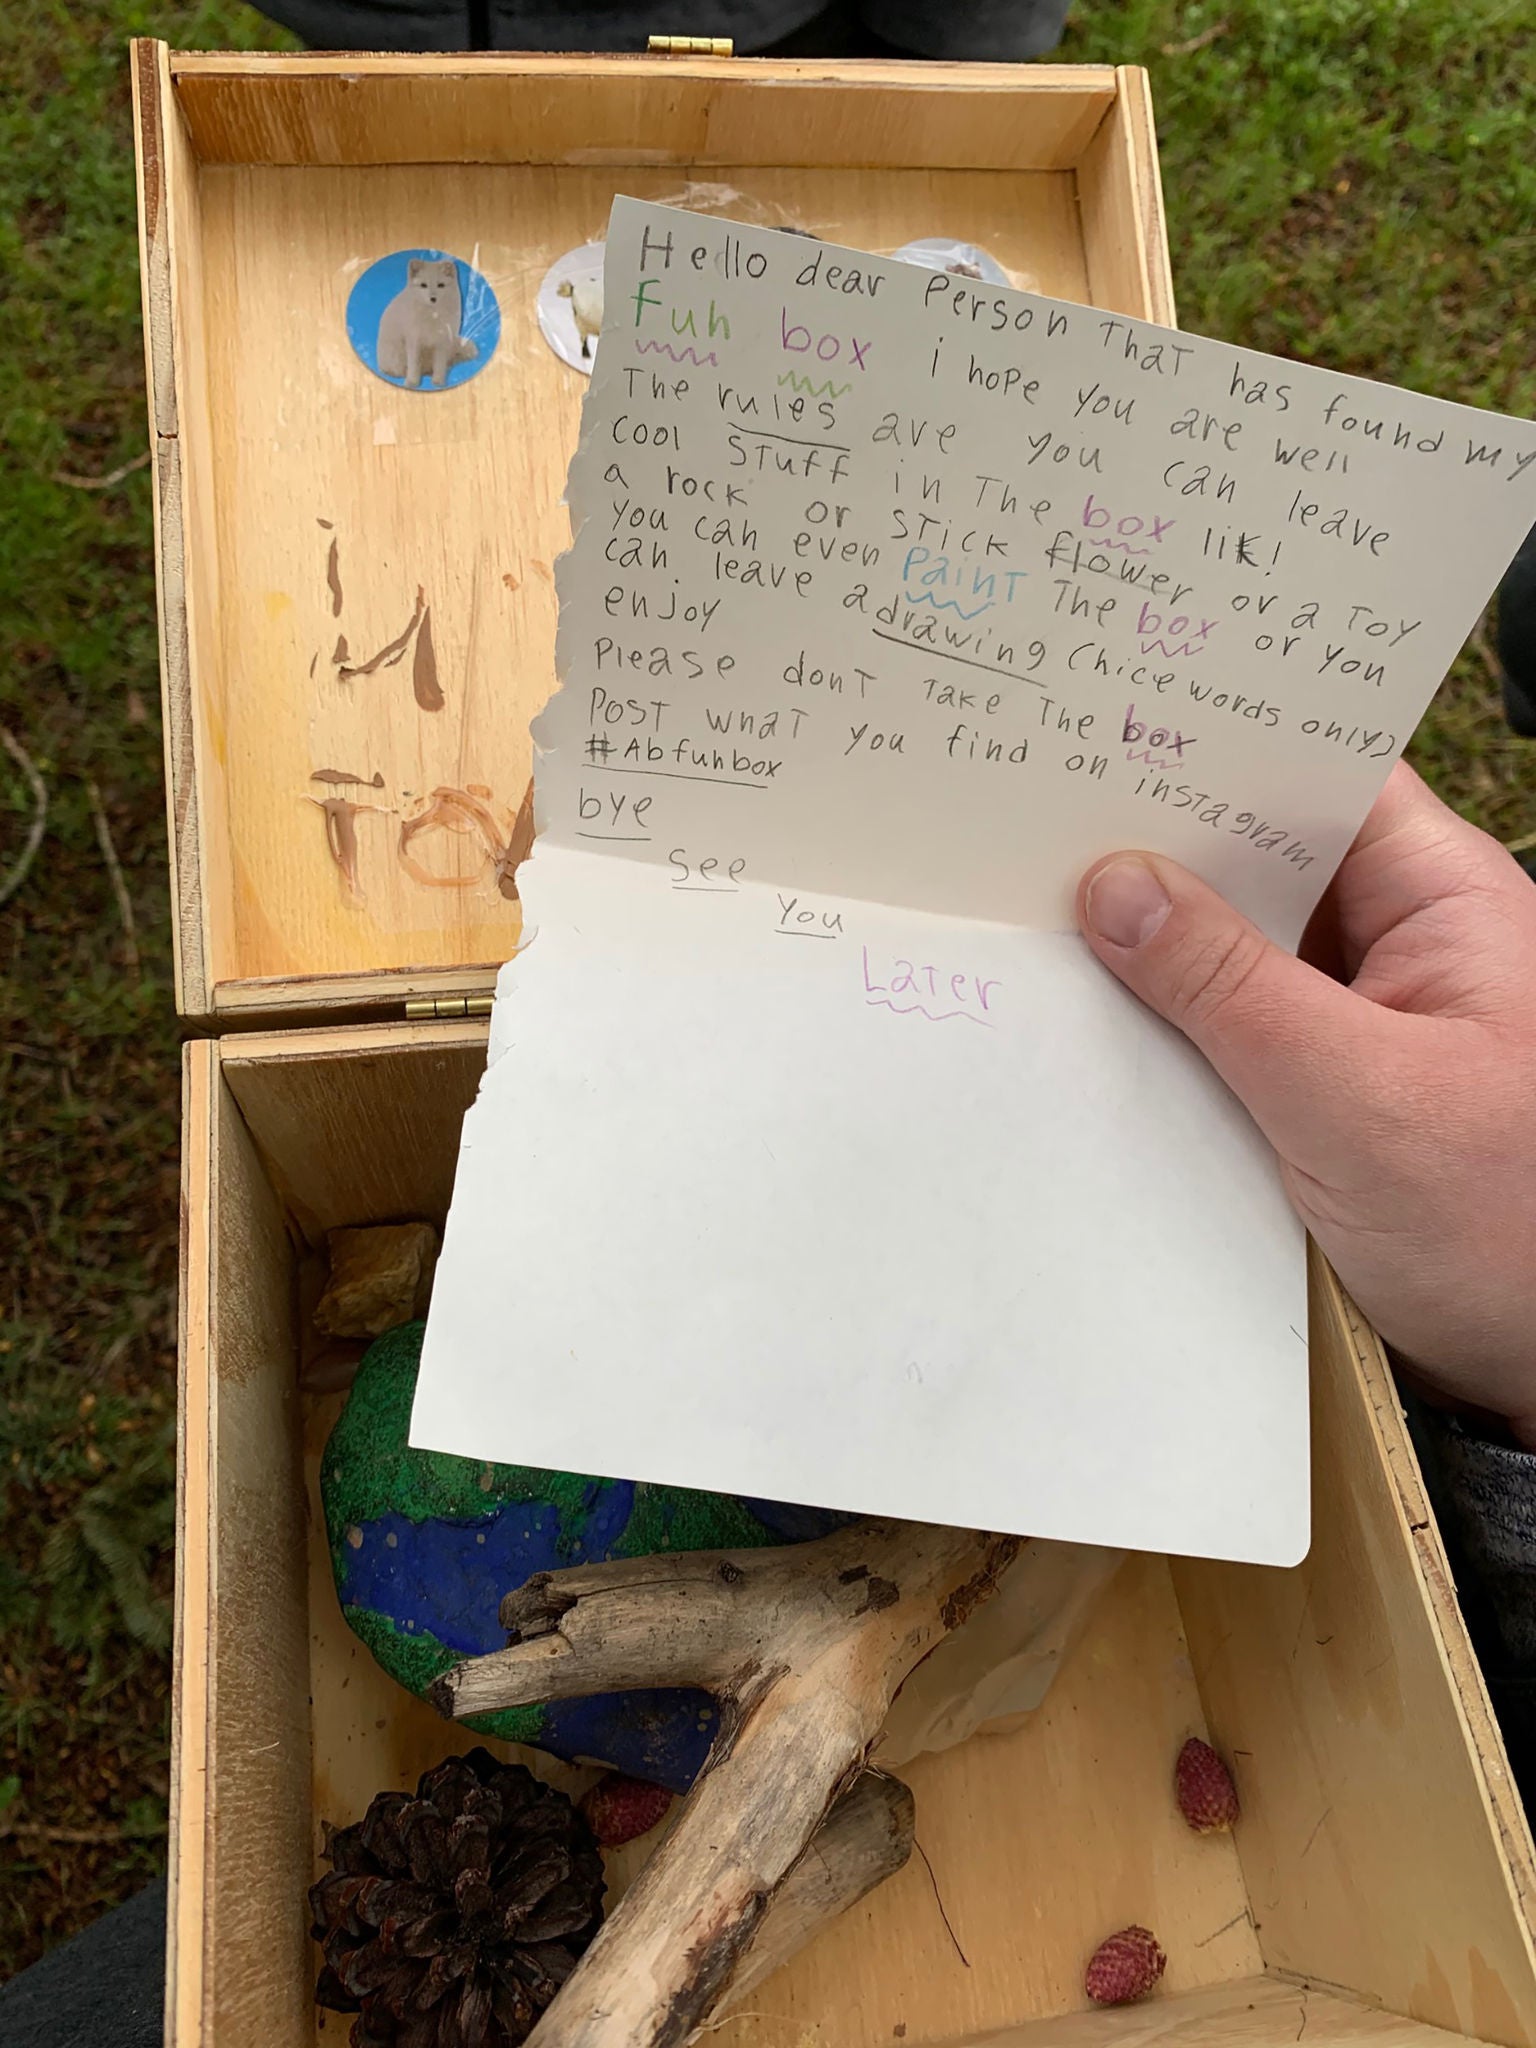 Hello dear Person That has found my
Fuh box i hope you are well
The rules are you can leave
cool stuff in The box lik!
a rock or stick flower or a Toy
you can even Paint The box or you
can leave a drawing (hice words only)
enjoy
Please dont Take The box
Post what you find on instagram
#Abfuhbox
bye
see
you
Later